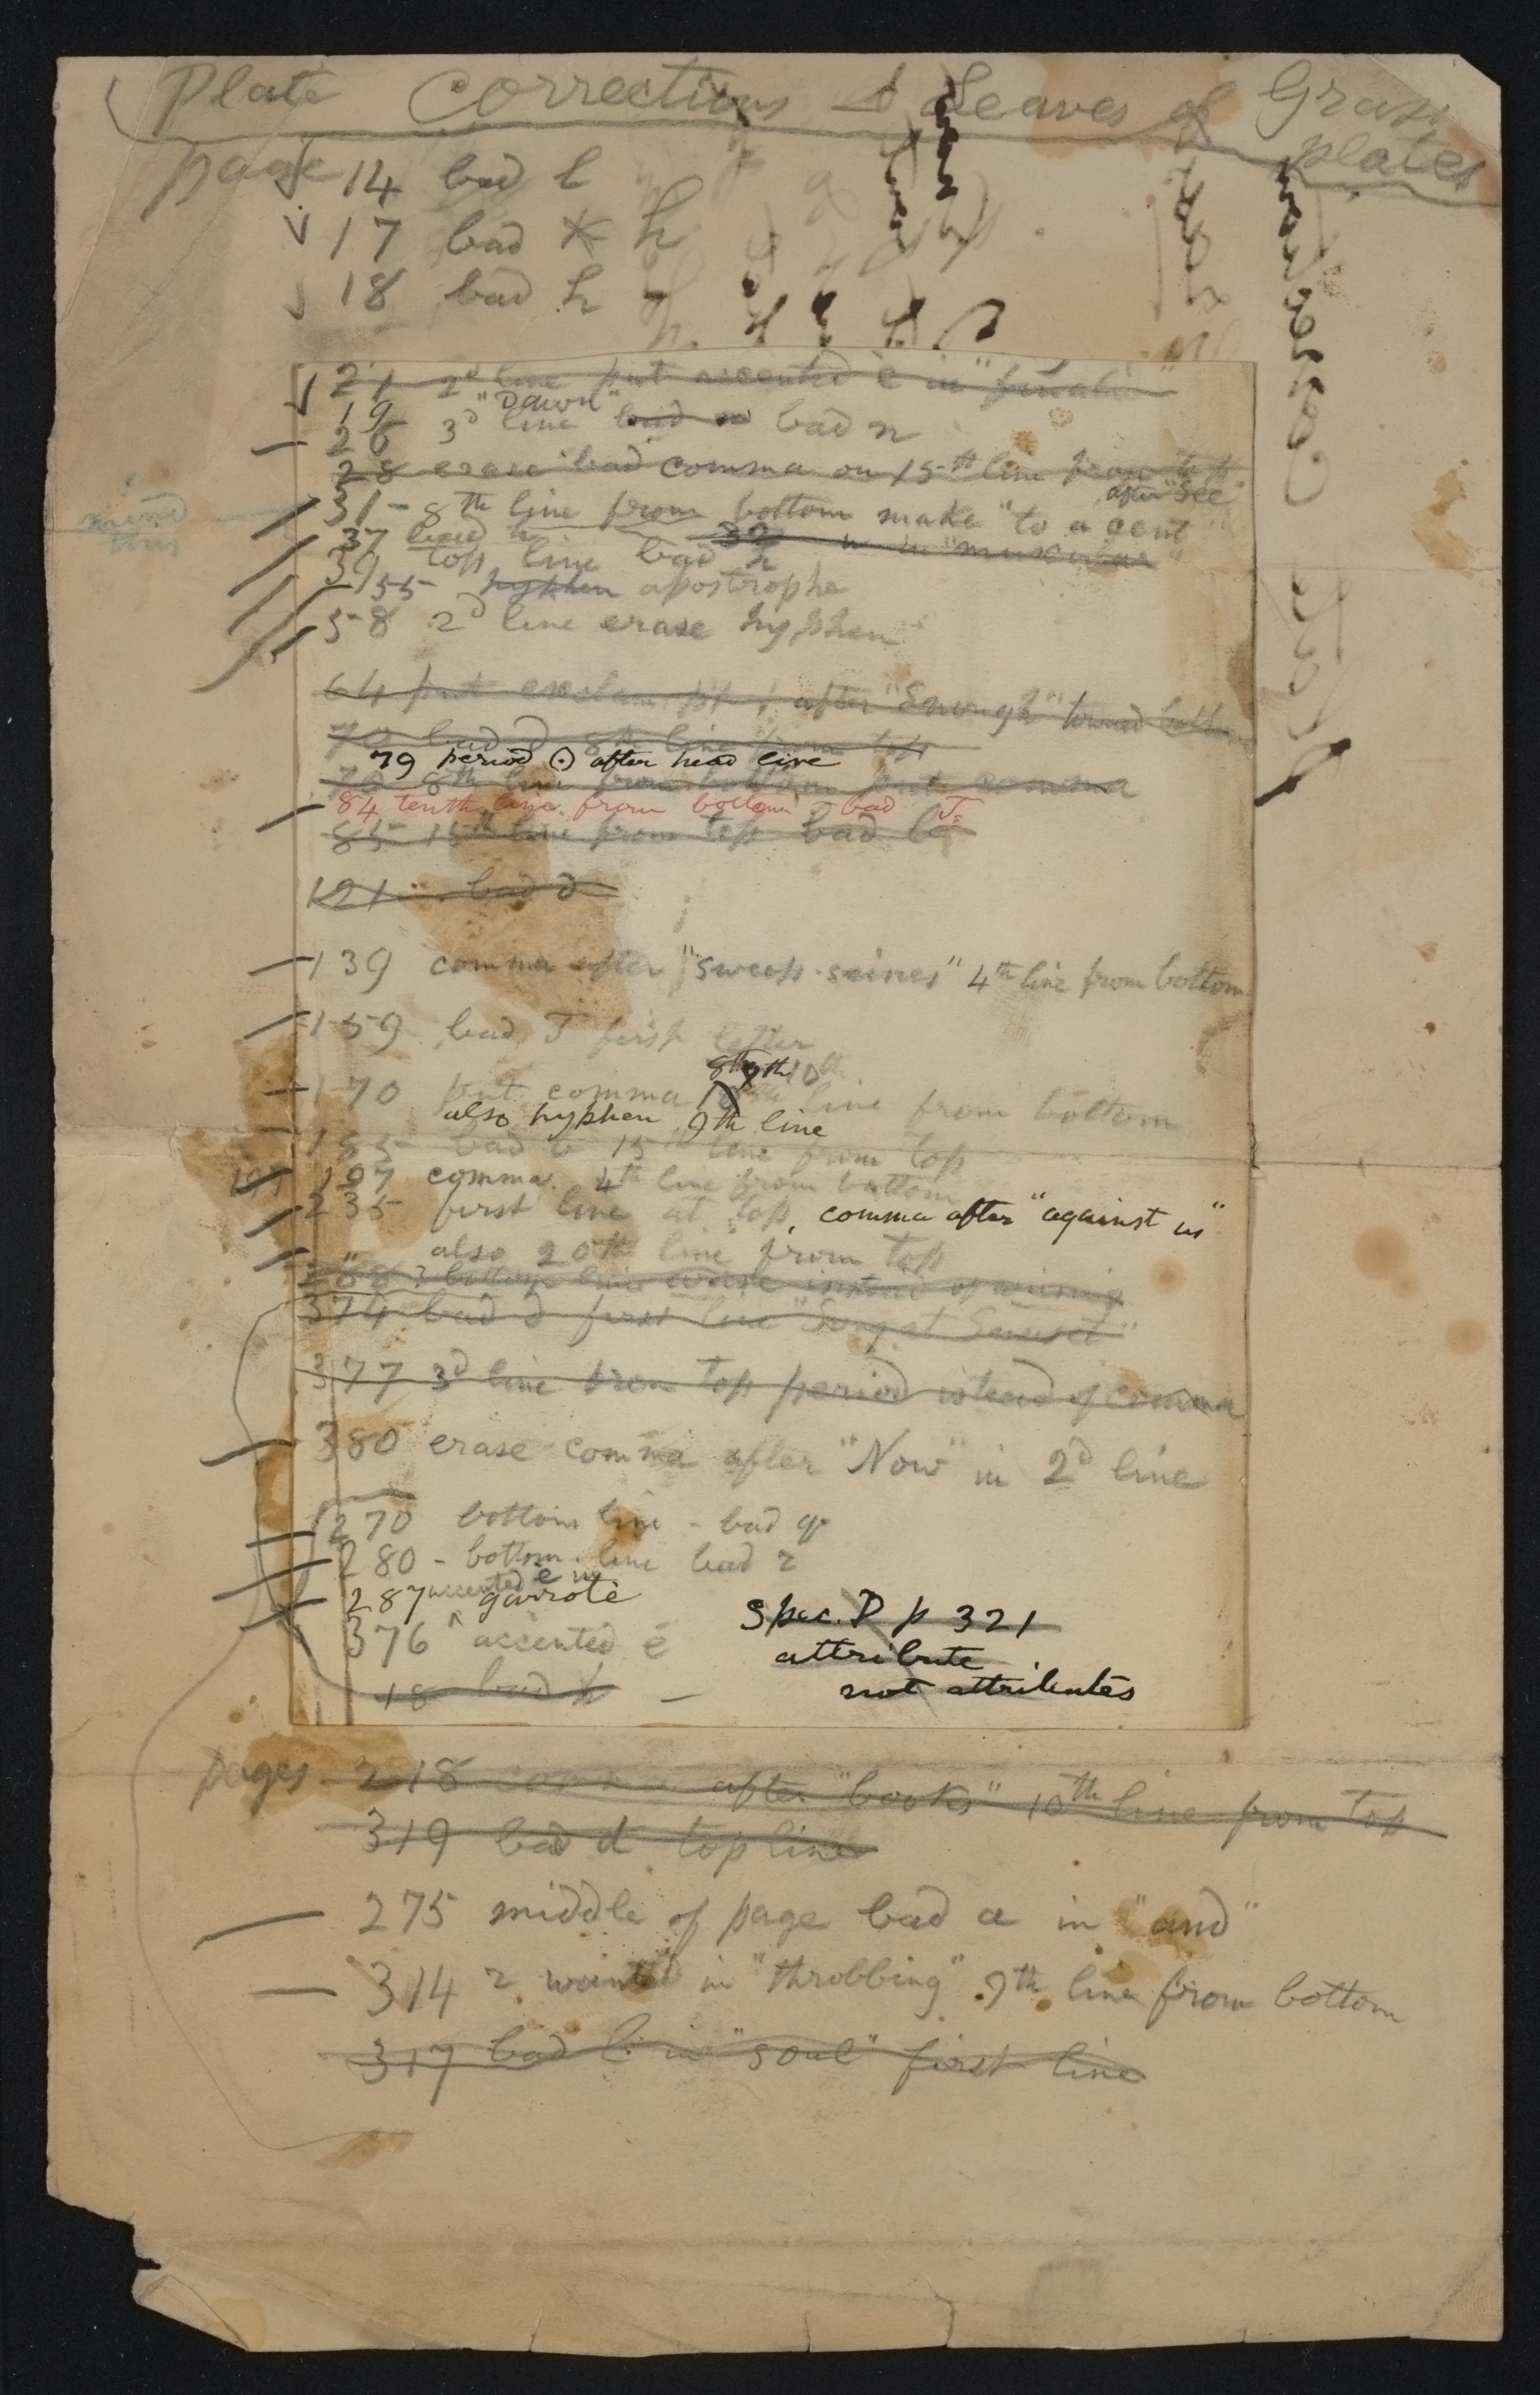 Plate Corrections to Leaves of Grass
plates
page 14 bad l
17 bad k h
18 bad h
21 2d line put accented e in "finalè"
"Dawn"
19
26 3d line bad n bad n
28 erase bad comma on 15th line from top
after "See"
31 - 8th line from bottom make "to a cent"
mind
this
37 bad h 32 in "muscular"
39 top line bad n
55 hyphen apostrophe
58 2d line erase hyphen
64 put exclam. pt ! after "Enough" toward bottom
70 bad d 8th line from top
79 period ⊙ after head line
78 8th line from bottom put comma
84 tenth line from bottom bad I
85 15th line from top bad b
121 bad d
139 comma after "sweep-seines" 4th line from bottom
159 bad I first letter
8th 9th 10th
170 put comma line from bottom
also hyphen 9th line
185 bad b 15th line from top
197 197 comma 4th line from bottom
235 first line at top, comma after "against us"
" also 20th line from top
288 ? bottom line instead of
374 bad d first line "Song at Sunset"
377 3d line from top period istead of comma
380 erase comma after "Now" in 2d line
270 bottom line - bad g
280 - bottom line bad r
287 accented e in garrotè
376 accented è
Spec. D p 321
attribute
not attributes
18 bad h —
pages 218 comma after "books" 10th line from top
319 bad d top line
275 middle of page bad a in "and"
314 r wanted in "throbbing" 9th line from bottom
317 bad l in "soul" first line